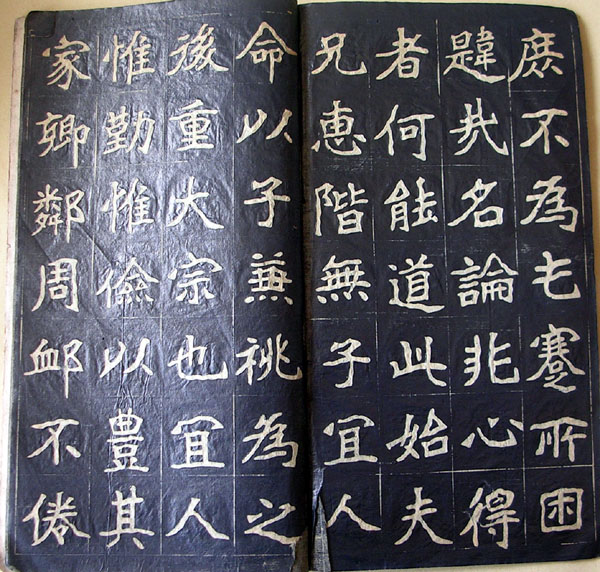 庶不為屯蹇所困
韙哉名論非心得
者何能道此始夫
兄惠階無子宜人
命以子兼祧為之
後重大宗也宜人
惟勤惟儉以豊其
家鄉鄰周卹不倦